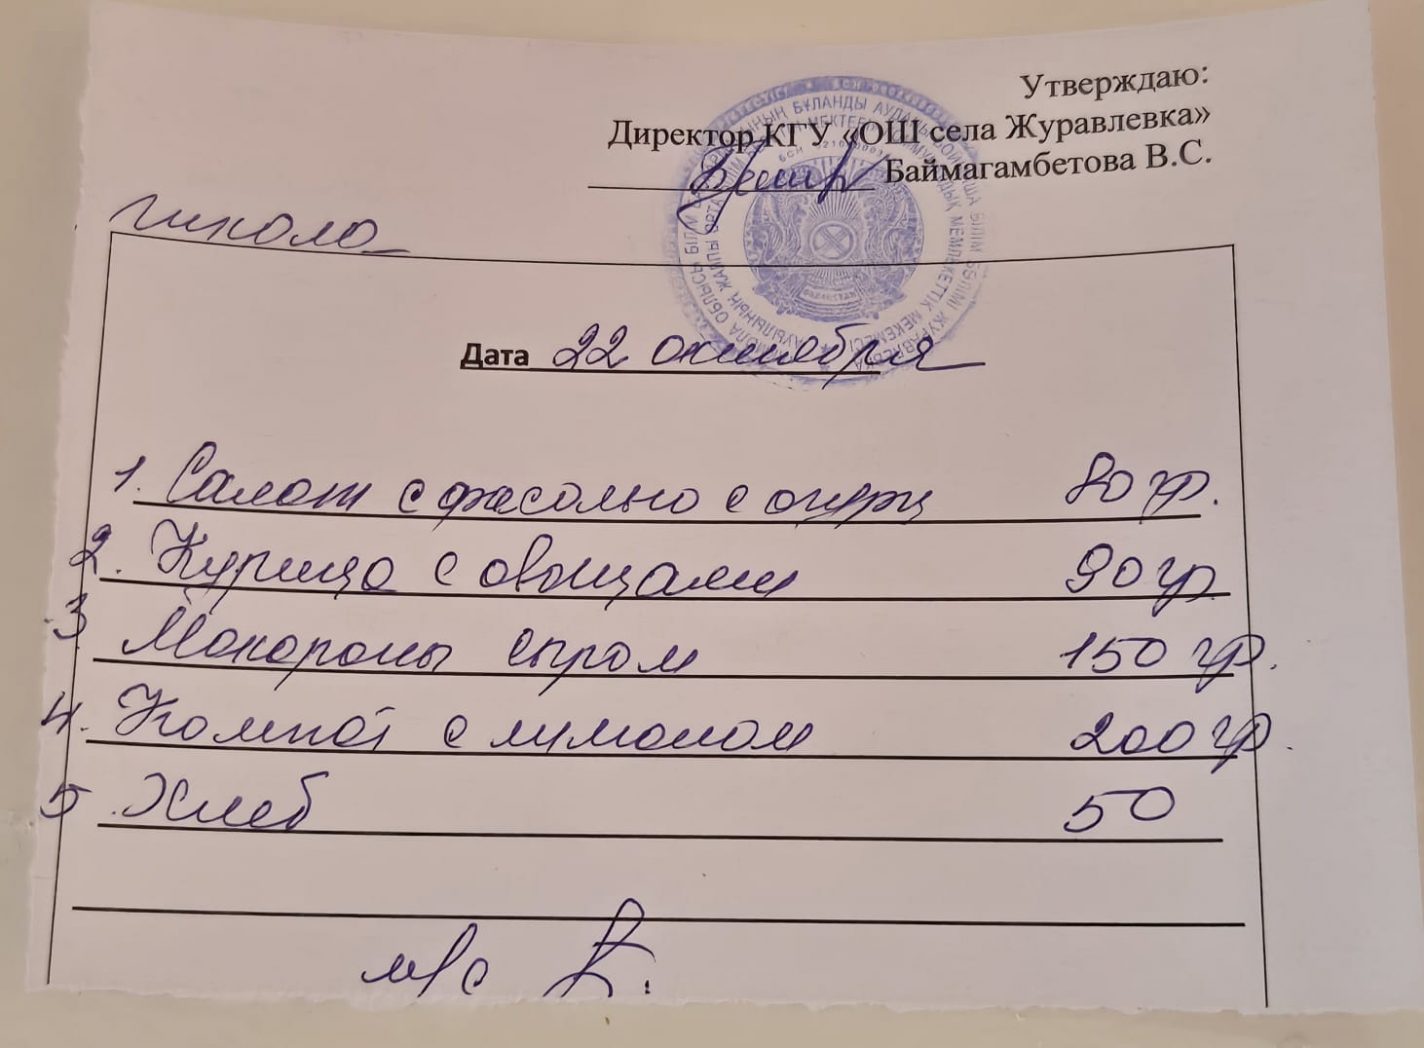 Утверждаю:
Директор КГУ «ОШ села Журавлевка»
Баймагамбетова В.С.
школа
Дата 22 октября
1. Салат с фасолью с огурц 80 гр.
2. Курица с овощами 90 гр.
3 Макароны сыром 150 гр.
4. Компот с лимоном 200 гр.
5. Хлеб 50
м/с